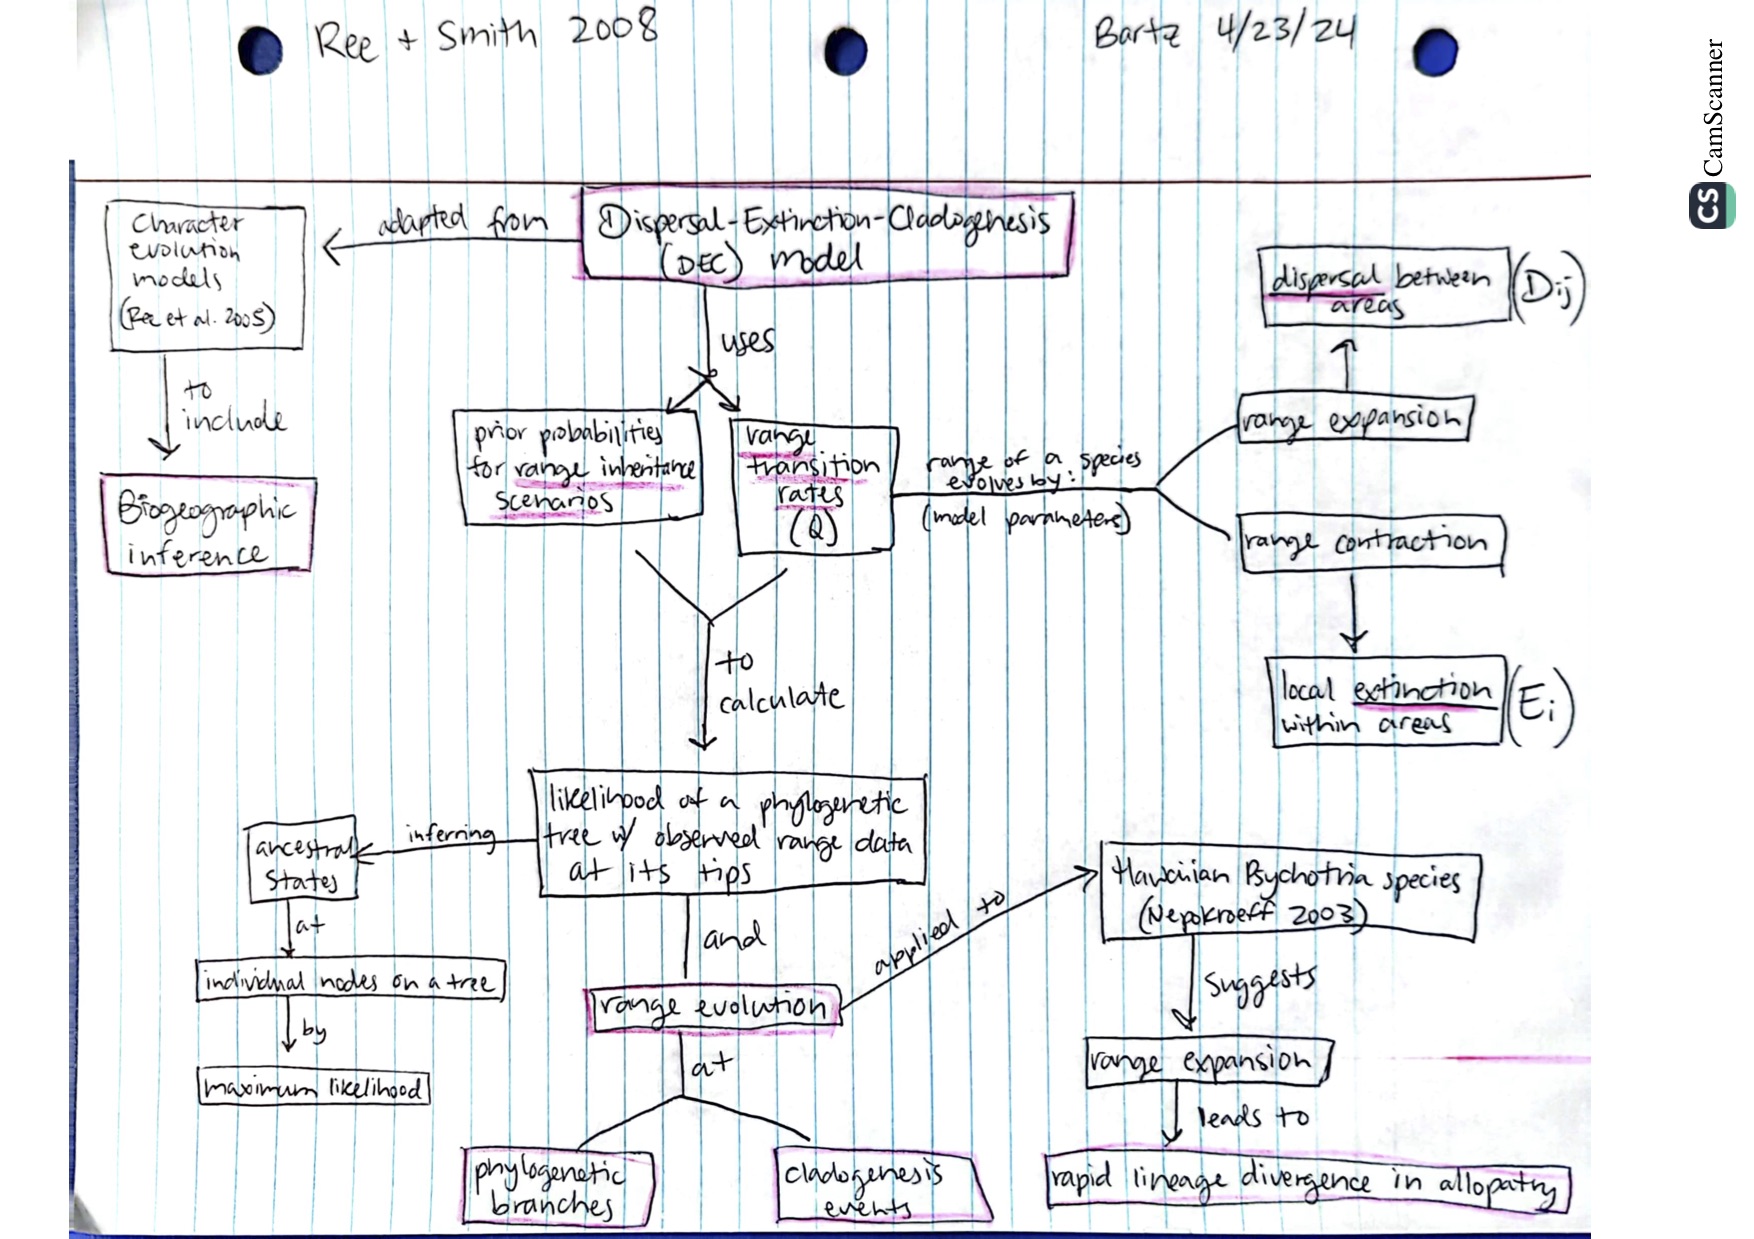 Ree + Smith 2008
Bartz 4/23/24
CS CamScanner
Dispersal-Extinction-Cladogenesis
(DEC) model
adapted from
Character
evolution
models
(Ree et al. 2005)
to
include
Biogeographic
inference
uses
prior probabilities
for range inheritance
scenarios
range
transition
rates
(Q)
range of a species
evolves by:
(model parameters)
range expansion
dispersal between
areas
(Dij)
range contraction
local extinction
within areas
(Ei)
to
calculate
likelihood of a phylogenetic
tree w/ observed range data
at its tips
inferring
ancestral
states
at
individual nodes on a tree
by
maximum likelihood
and
range evolution
at
phylogenetic
branches
cladogenesis
events
applied to
Hawaiian Psychotria species
(Nepokroeff 2003)
suggests
range expansion
leads to
rapid lineage divergence in allopatry